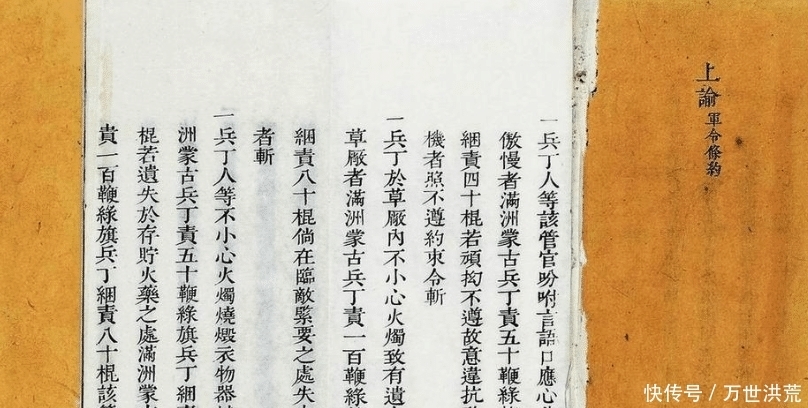 上諭軍令條約
一兵丁人等該管官吩咐言語口應心
傲慢者滿洲蒙古兵丁責五十鞭綠
綑責四十棍若頑拗不遵故意違抗
機者照不遵約束令斬
一兵丁於草廠內不小心火燭致有遺
草廠者滿洲蒙古兵丁責一百鞭綠
綑責八十棍倘在臨敵緊要之處失
者斬
一兵丁人等不小心火燭燒燬衣物器
洲蒙古兵丁責五十鞭綠旗兵丁綑
棍若遺失於存貯火藥之處滿洲蒙
責一百鞭綠旗兵丁綑責八十棍該
快传号/万世洪荒